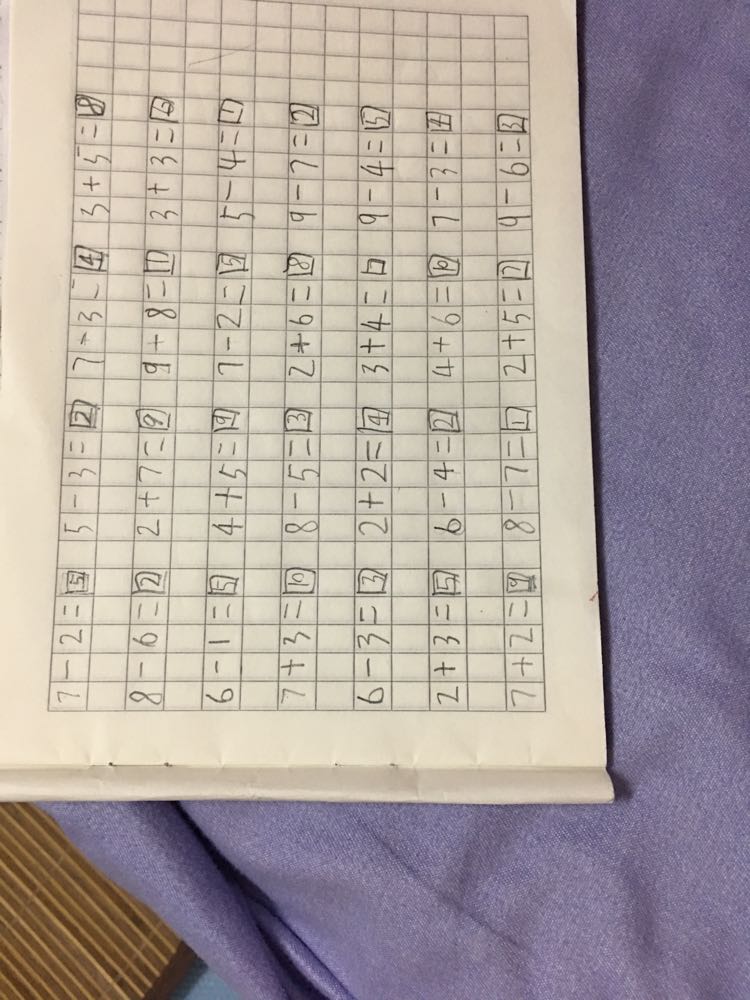 7-2=5 5-3=2 7-3=4 3+5=8
8-6=2 2+7=9 9+8=17 3+3=6
6-1=5 4+5=9 7-2=5 5-4=1
7+3=10 8-5=3 2+6=8 9-7=2
6-3=3 2+2=4 3+4=7 9-4=5
2+3=5 6-4=2 4+6=10 7-3=4
7+2=9 8-7=1 2+5=7 9-6=3